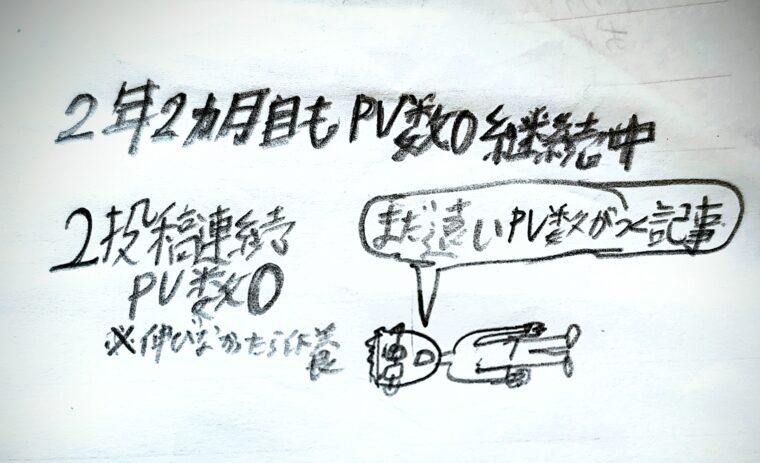 2年2ヵ月目もPV数0継続中
2投稿連続
PV数0
まだ遠いPV数がつく記事
※伸びなかったら休養